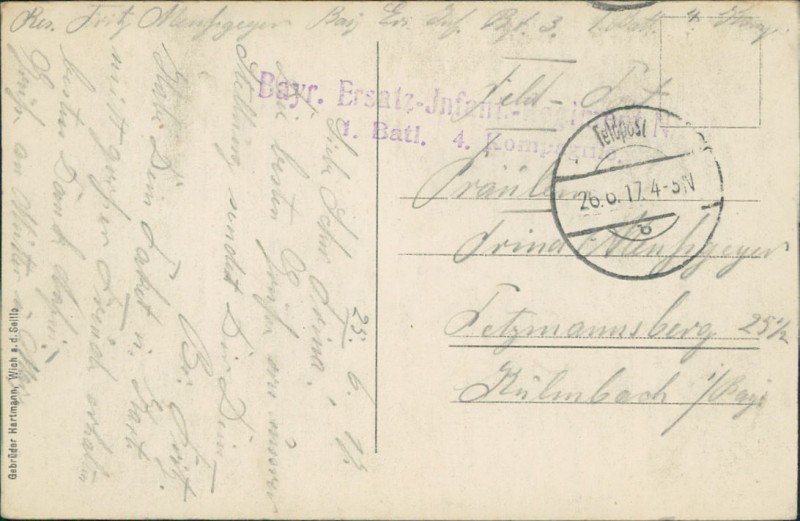 Res. Fritz Bay. Ers. Inf. Rgt. 3. 1. Batl. 4. Komp.
Bayr. Ersatz-Infant.-Regiment Nr.
1. Batl. 4. Kompagnie.
Feld-Post
Feldpost
26.6.17.4-5N
b
Fräulein
Trina
Petzmannsberg 25 1/2
Kulmbach i/Bay.
25. 6. 17.
Liebe Schw. Trina!
Die besten Grüße aus unserer
Stellung sendet Dir Dein
Br. Fritz.
Habe Dein Paket u. Karte
mit großer Freude erhalten
besten Dank dafür!
Grüße an Mutter u. Alle
Gebrüder Hartmann, Wich a.d. Seille